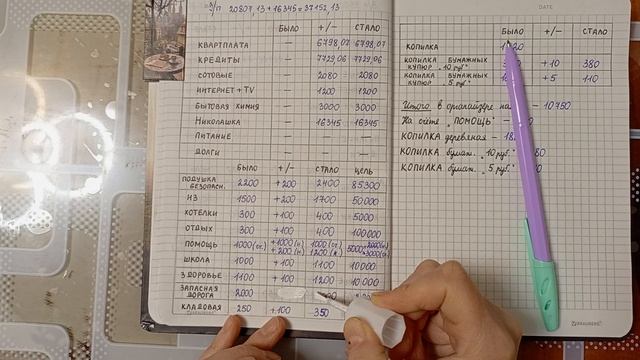 З/П 20807,13 + 16345 = 37152,13
БЫЛО +/- СТАЛО
КВАРТПЛАТА — 6798,07 6798,07
КРЕДИТЫ — 7729,06 7729,06
СОТОВЫЕ — 2080 2080
ИНТЕРНЕТ + TV — 1200 1200
БЫТОВАЯ ХИМИЯ — 3000 3000
НИКОЛАШКА — 16345 16345
ПИТАНИЕ — — —
ДОЛГИ — — —
БЫЛО +/- СТАЛО ЦЕЛЬ
ПОДУШКА БЕЗОПАСН. 2200 +200 2400 85300
НЗ 1500 +200 1700 50000
ХОТЕЛКИ 300 +100 400 5000
ОТДЫХ 300 +100 400 100000
ПОМОЩЬ 1000 (ос.) +1000 (н) +200 (н) 1000 (ос) 1200 (н)
ШКОЛА 1000 +100 1100 10000
ЗДОРОВЬЕ 1100 +100 1200 10000
ЗАПАСНАЯ ДОРОГА 2000
КЛАДОВАЯ 250 +100 350
DATE
БЫЛО +/- СТАЛО
КОПИЛКА
КОПИЛКА БУМАЖНЫХ КУПЮР „10 руб" +10 380
КОПИЛКА БУМАЖНЫХ КУПЮР „5 руб" +5 110
Итого в органайзере — 10750
На счёте „ПОМОЩЬ" —
КОПИЛКА деревяная —
КОПИЛКА бумаж. „10 руб."
КОПИЛКА бумаж. „5 руб."
BRAUBERG